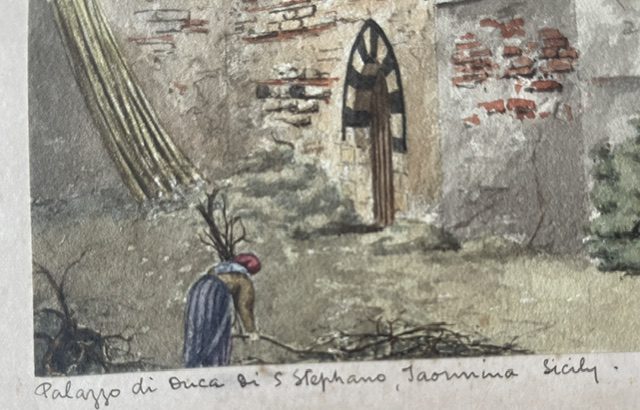 Palazzo di Duca di S Stephano, Taormina Sicily.